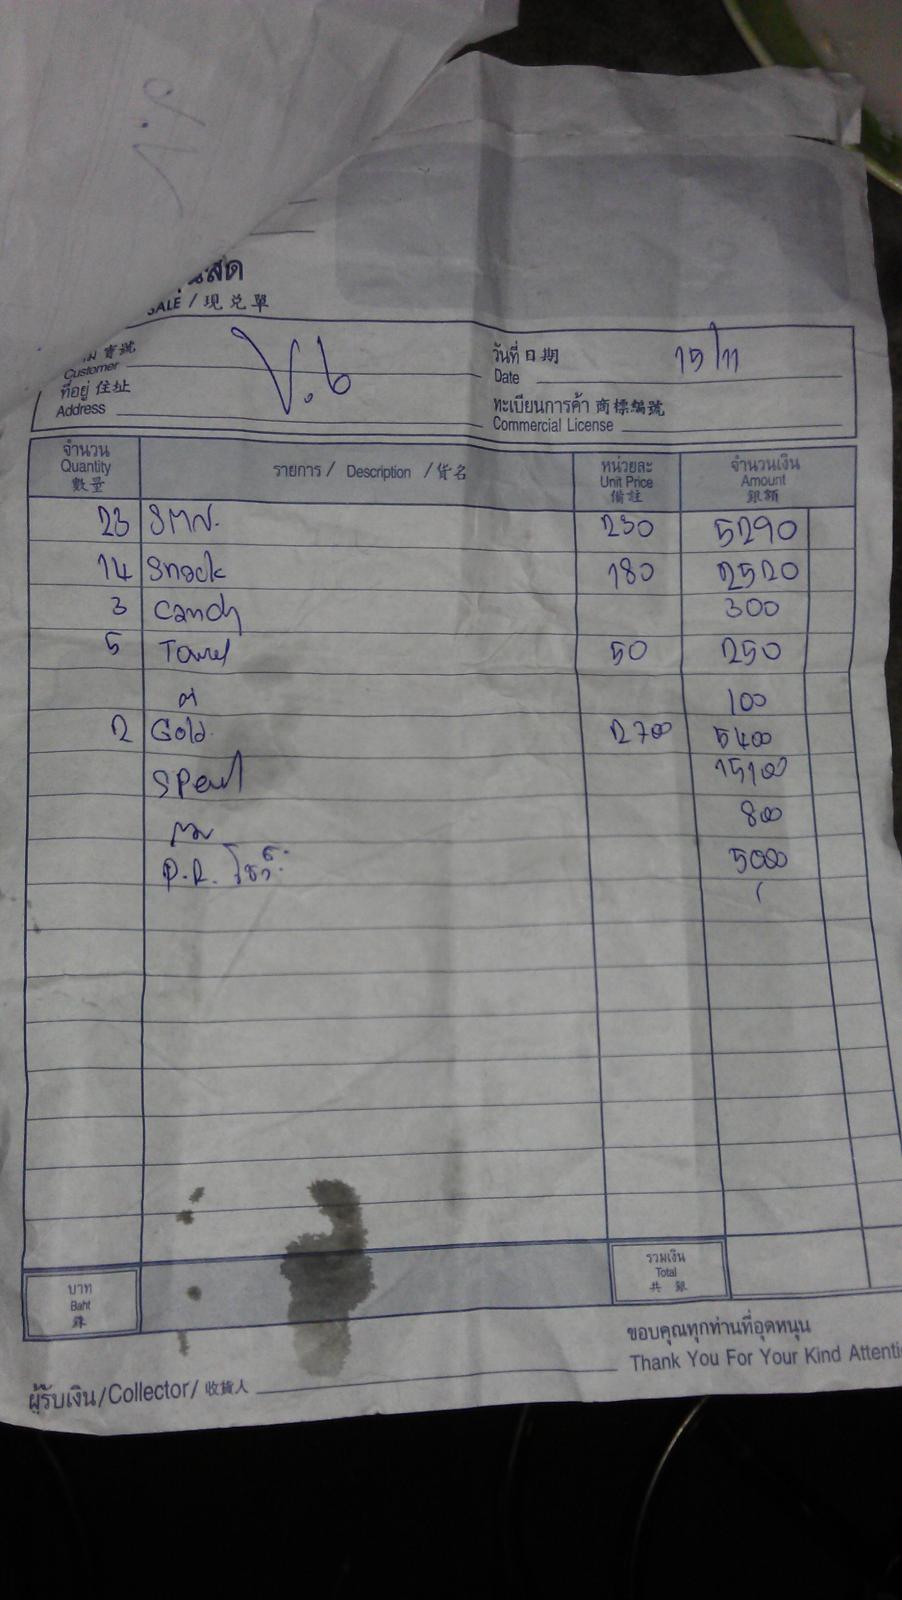 V.P
นสด
SALE / 現兌單
Customer 寶號
ที่อยู่ 住址
Address
V.6
วันที่ 日期
Date
15/11
ทะเบียนการค้า 商標編號
Commercial License
จำนวน รายการ / Description / 貨名 หน่วยละ จำนวนเงิน
Quantity Unit Price Amount
數量 備註 銀額
23 SMN. 230 5290
14 Snack 180 2520
3 Candy 300
5 Towel 50 250
100
2 Gold. 2700 5400
15100
800
P.R. 5000
บาท
Baht
รวมเงิน
Total
共 銀
ขอบคุณทุกท่านที่อุดหนุน
Thank You For Your Kind Attenti
ผู้รับเงิน/Collector/ 收貨人